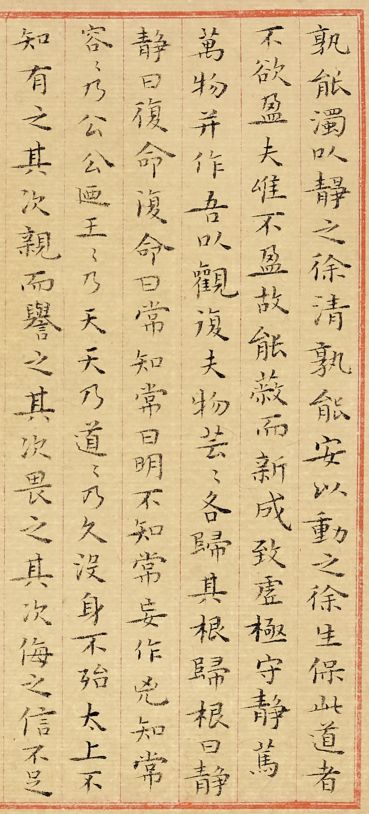 孰能濁以靜之徐清孰能安以動之徐生保此道者
不欲盈夫唯不盈故能蔽而新成致虛極守靜篤
萬物并作吾以觀復夫物芸〻各歸其根歸根曰靜
靜曰復命復命曰常知常曰明不知常妄作兇知常
容〻乃公公迺王〻乃天天乃道〻乃久沒身不殆太上不
知有之其次親而譽之其次畏之其次侮之信不足